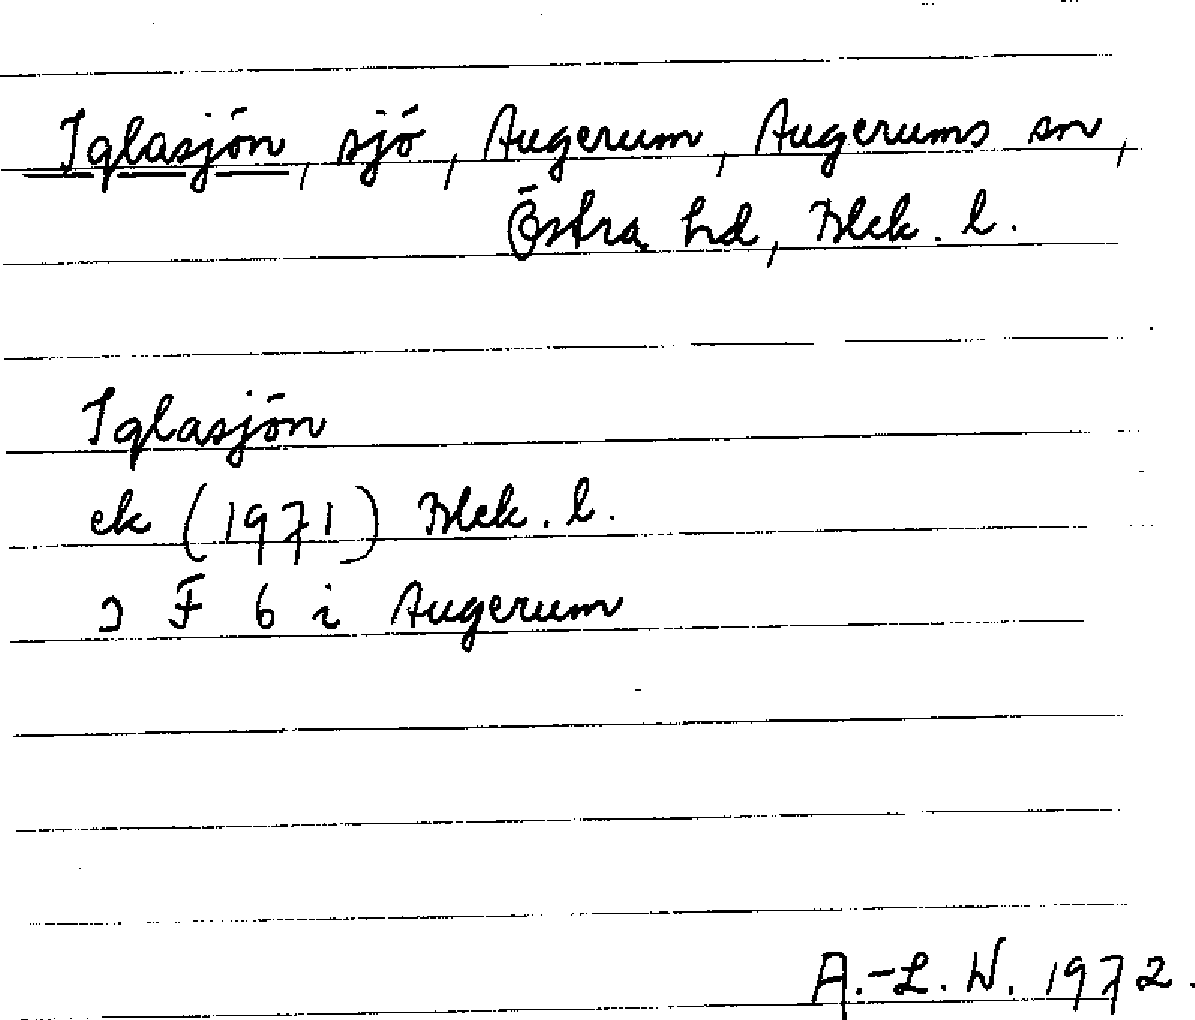 Iglasjön, sjö, Augerum, Augerums sn,
Östra hd, Blek. l.
Iglasjön
ek (1971) Blek. l.
ɔ F 6 i Augerum
A.-L. W. 1972.